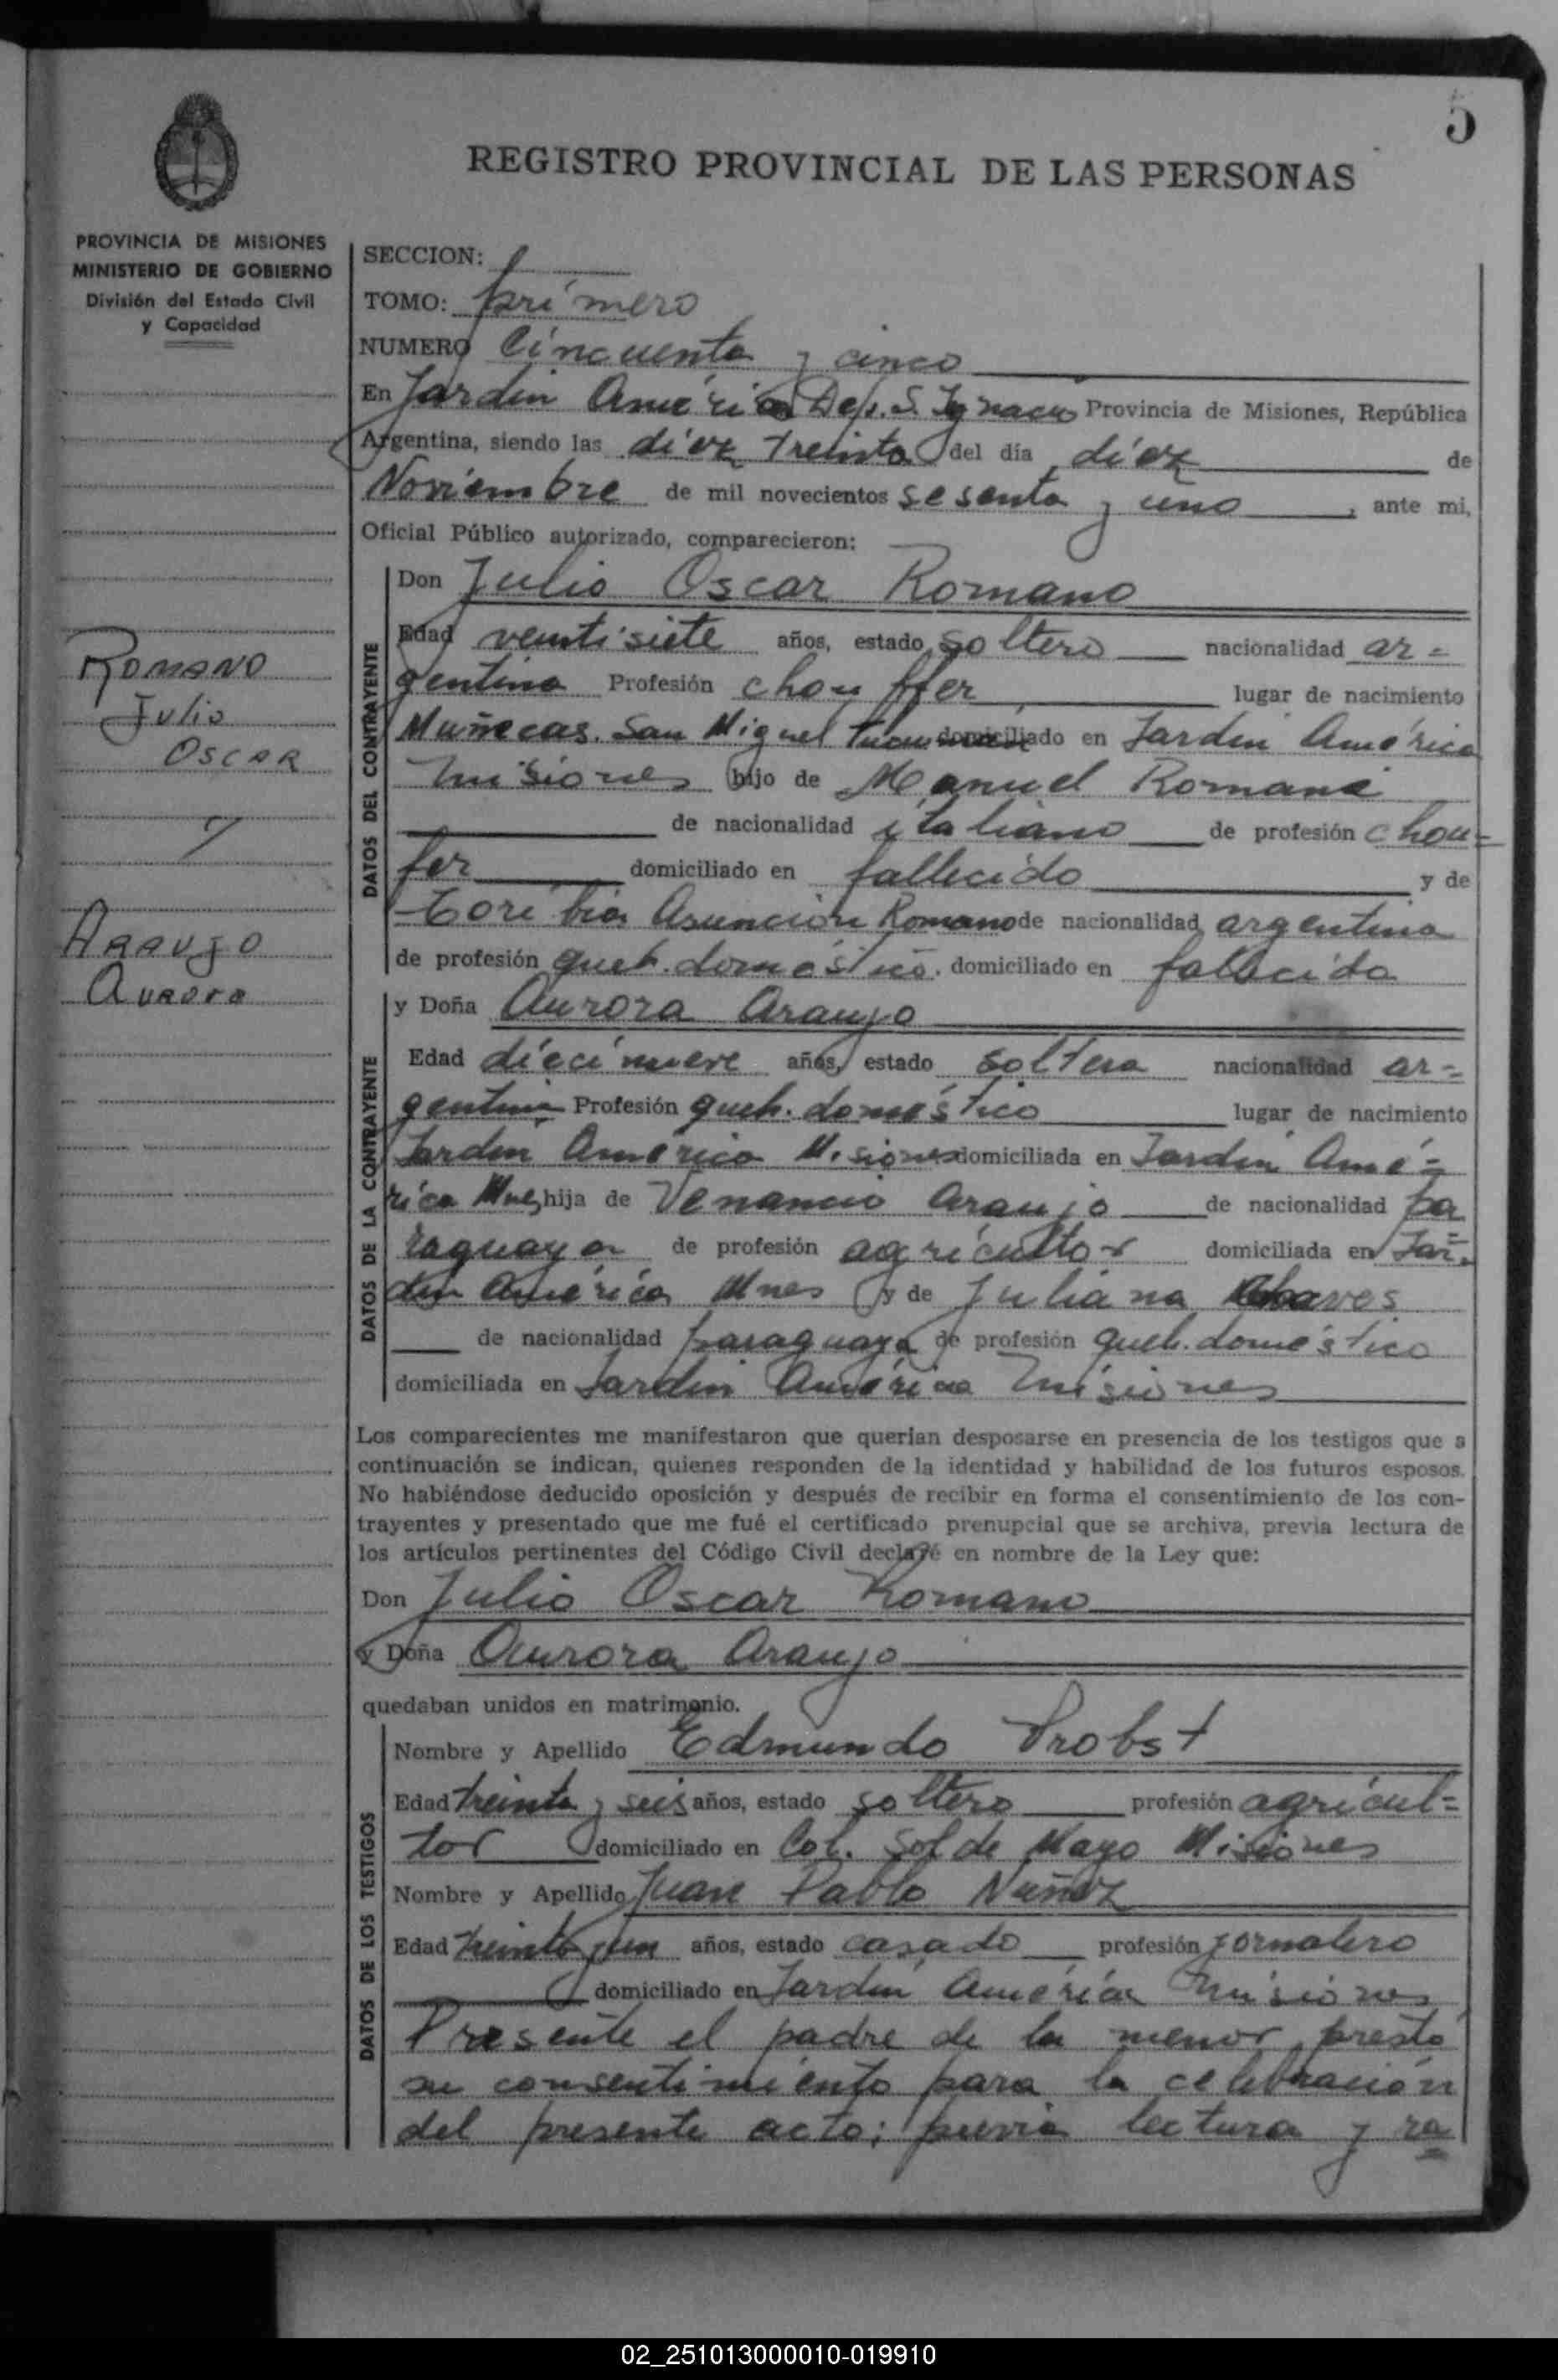 5
REGISTRO PROVINCIAL DE LAS PERSONAS
PROVINCIA DE MISIONES
MINISTERIO DE GOBIERNO
División del Estado Civil
y Capacidad
ROMANO
Julio
OSCAR
y
ARAUJO
AURORA
SECCION:
TOMO: primero
NUMERO Cincuenta y cinco
En Jardín América Dep. S. Ignacio Provincia de Misiones, República
Argentina, siendo las diez treinta del día diez de
Noviembre de mil novecientos sesenta y uno, ante mi,
Oficial Público autorizado, comparecieron:
DATOS DEL CONTRAYENTE
Don Julio Oscar Romano
Edad veintisiete años, estado soltero nacionalidad ar=
gentina Profesión chouffer lugar de nacimiento
Muñecas. San Miguel Tucumán domiciliado en Jardín América
Misiones hijo de Manuel Romano
de nacionalidad italiano de profesión chou=
fer domiciliado en fallecido y de
Toribia Asunción Romano de nacionalidad argentina
de profesión queh. doméstico. domiciliado en fallecida
DATOS DE LA CONTRAYENTE
y Doña Aurora Araujo
Edad diecinueve años, estado soltera nacionalidad ar=
gentina Profesión queh. doméstico lugar de nacimiento
Jardín América Misiones domiciliada en Jardín Amé=
rica Mnes hija de Venancio Araujo de nacionalidad pa
raguaya de profesión agricultor domiciliada en Jar=
dín América Mnes y de Juliana Chaves
de nacionalidad paraguaya de profesión queh. doméstico
domiciliada en Jardín América Misiones
Los comparecientes me manifestaron que querían desposarse en presencia de los testigos que a
continuación se indican, quienes responden de la identidad y habilidad de los futuros esposos.
No habiéndose deducido oposición y después de recibir en forma el consentimiento de los con-
trayentes y presentado que me fué el certificado prenupcial que se archiva, previa lectura de
los artículos pertinentes del Código Civil declaré en nombre de la Ley que:
Don Julio Oscar Romano
y Doña Aurora Araujo
quedaban unidos en matrimonio.
DATOS DE LOS TESTIGOS
Nombre y Apellido Edmundo Probst
Edad treinta y seis años, estado soltero profesión agricul=
tor domiciliado en Col. Sol de Mayo Misiones
Nombre y Apellido Juan Pablo Nuñez
Edad treinta y un años, estado casado profesión jornalero
domiciliado en Jardín América Misiones
Presente el padre de la menor prestó
su consentimiento para la celebración
del presente acto; previa lectura y ra=
02_251013000010-019910